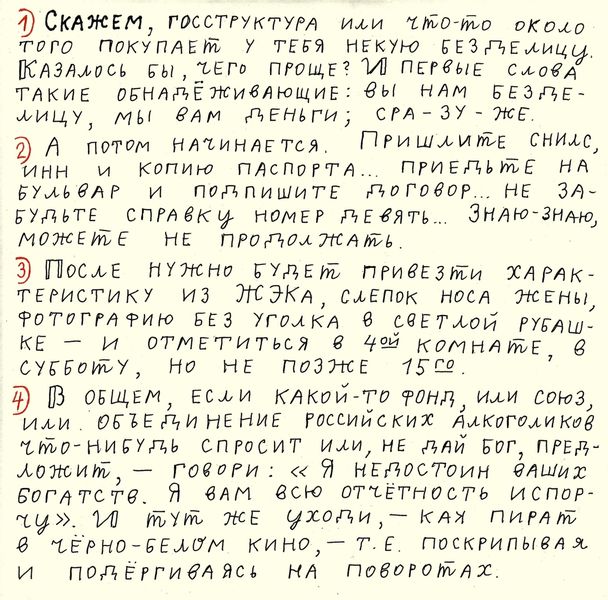 1) Скажем, госструктура или что-то около
того покупает у тебя некую безделицу.
Казалось бы, чего проще? И первые слова
такие обнадёживающие: вы нам безде-
лицу, мы вам деньги; сра-зу-же.
2) А потом начинается. Пришлите СНИЛС,
ИНН и копию паспорта... приедьте на
бульвар и подпишите договор... не за-
будьте справку номер девять... Знаю-знаю,
можете не продолжать.
3) После нужно будет привезти харак-
теристику из ЖЭКа, слепок носа жены,
фотографию без уголка в светлой рубаш-
ке – и отметиться в 4ой комнате, в
субботу, но не позже 15го.
4) В общем, если какой-то фонд, или союз,
или объединение российских алкоголиков
что-нибудь спросит или, не дай бог, пред-
ложит, – говори: «Я недостоин ваших
богатств. Я вам всю отчётность испор-
чу». И тут же уходи, – как пират
в чёрно-белом кино, – т.е. поскрипывая
и подёргиваясь на поворотах.